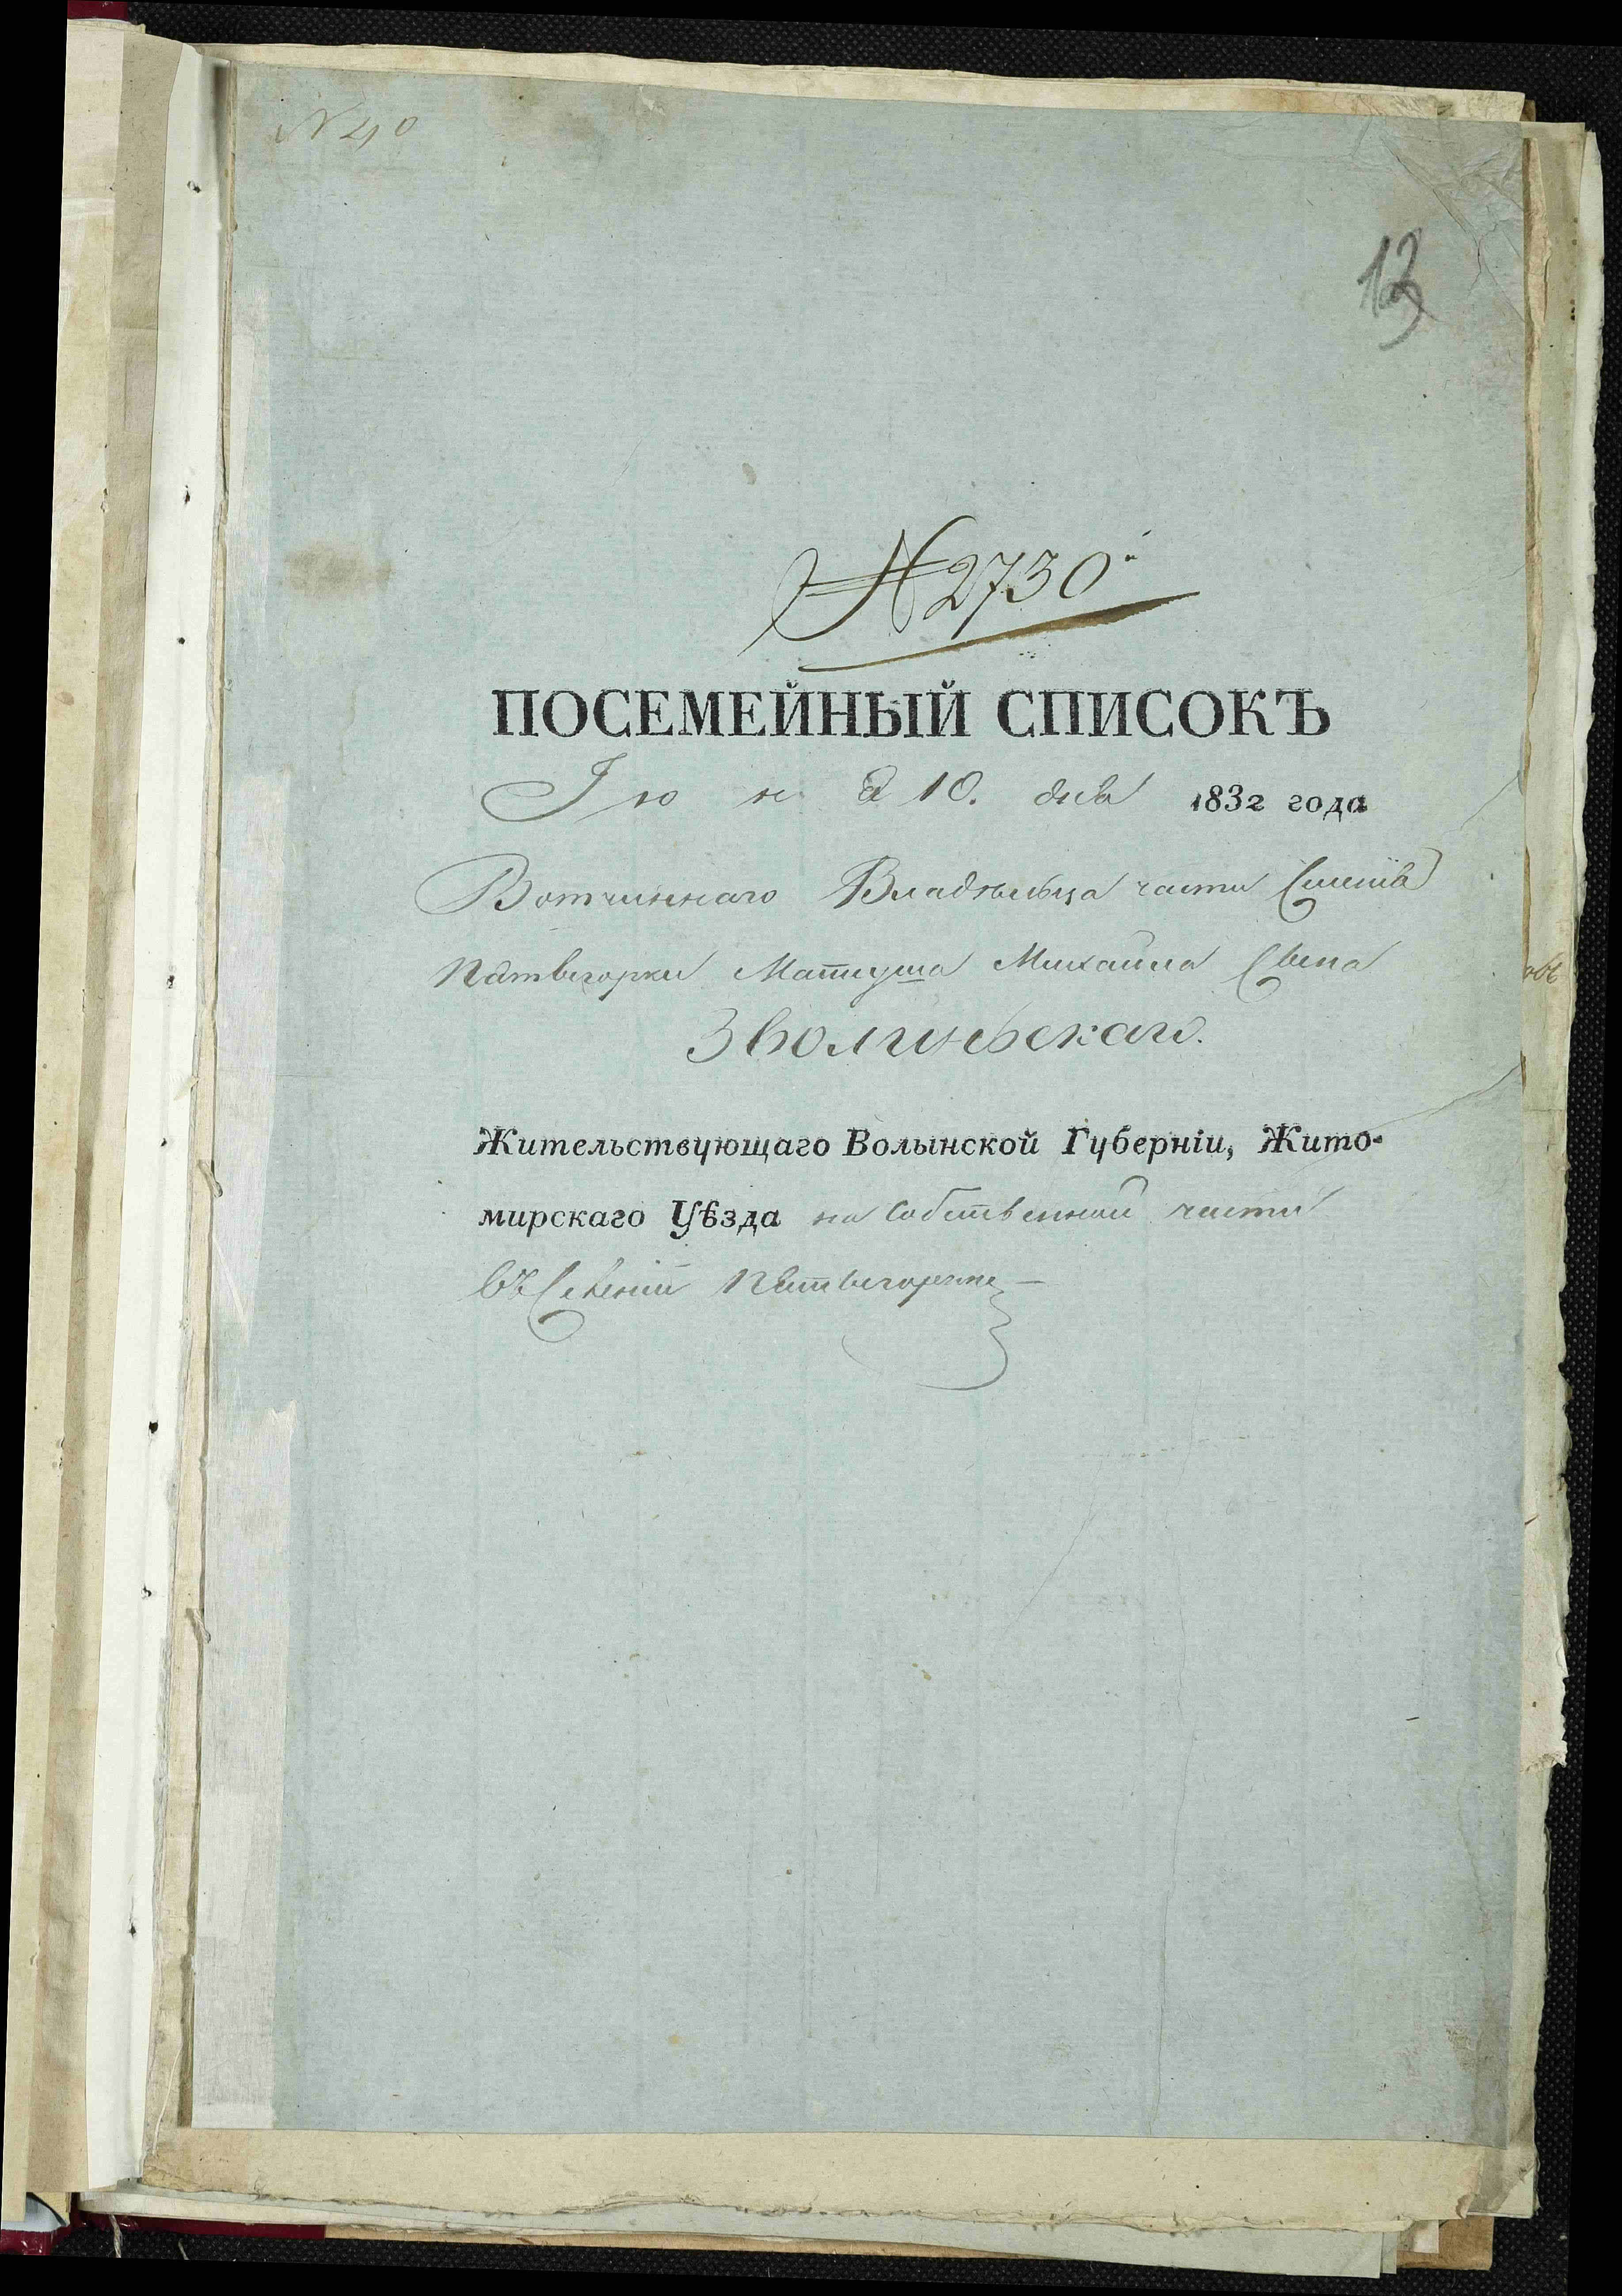 N 40
13
N 2730
ПОСЕМЕЙНЫЙ СПИСОКЪ
Іюня 10. дня 1832 года
Вотчиннаго Владѣльца части Сѣленія
Пятигорки Матеуша Михайла Сына
Зволиньскаго.
Жительствующаго Волынской Губерніи, Жито-
мирскаго Уѣзда на Собственной части
въ Селеніи